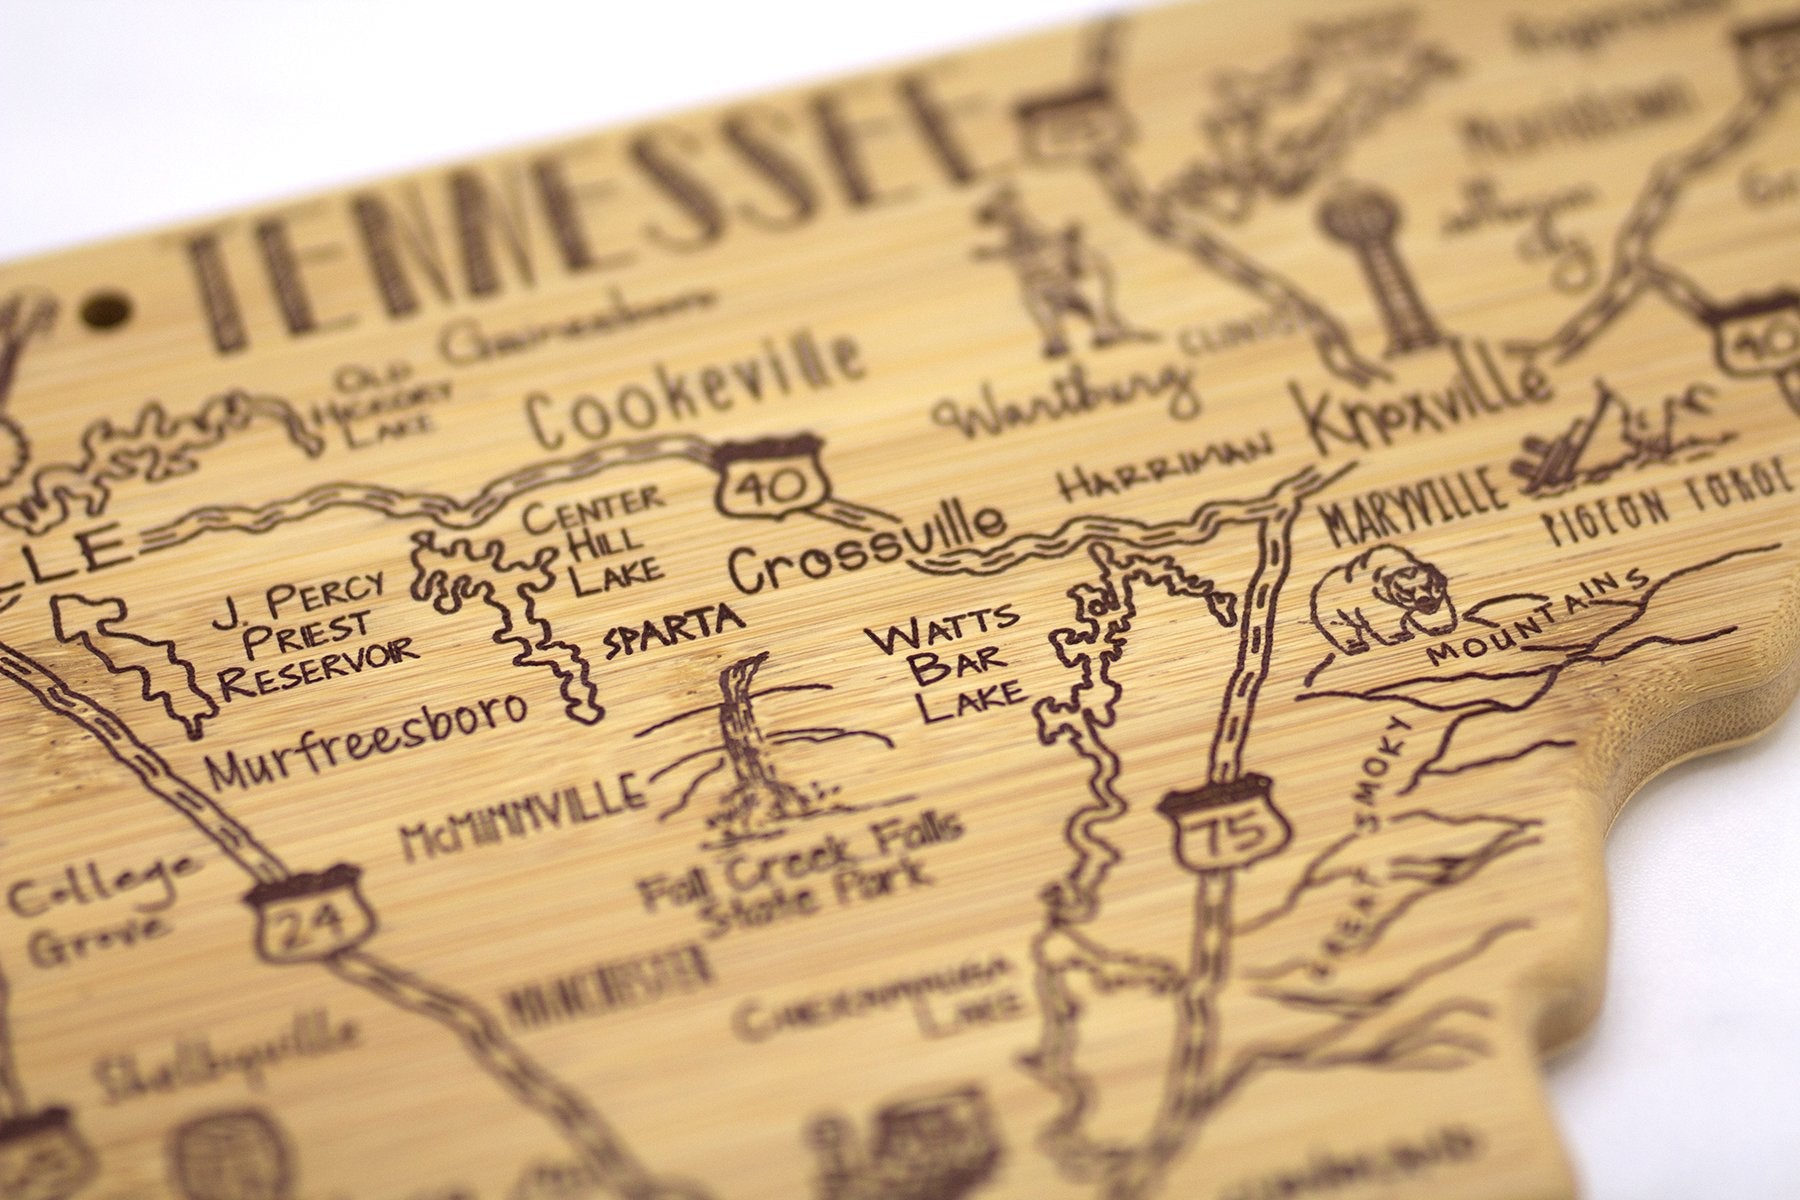 TENNESSEE
Gainesboro
OLD
HICKORY
LAKE
Cookeville
40
CENTER
HILL
LAKE
Crossville
Wartburg
CLINTON
HARRIMAN
Knoxville
Morristown
40
MARYVILLE
PIGEON FORGE
LLE
J. PERCY
PRIEST
RESERVOIR
SPARTA
WATTS
BAR
LAKE
GREAT SMOKY MOUNTAINS
Murfreesboro
McMINNVILLE
Fall Creek Falls
State Park
75
College
Grove
24
MANCHESTER
CHICKAMAUGA
LAKE
Shelbyville